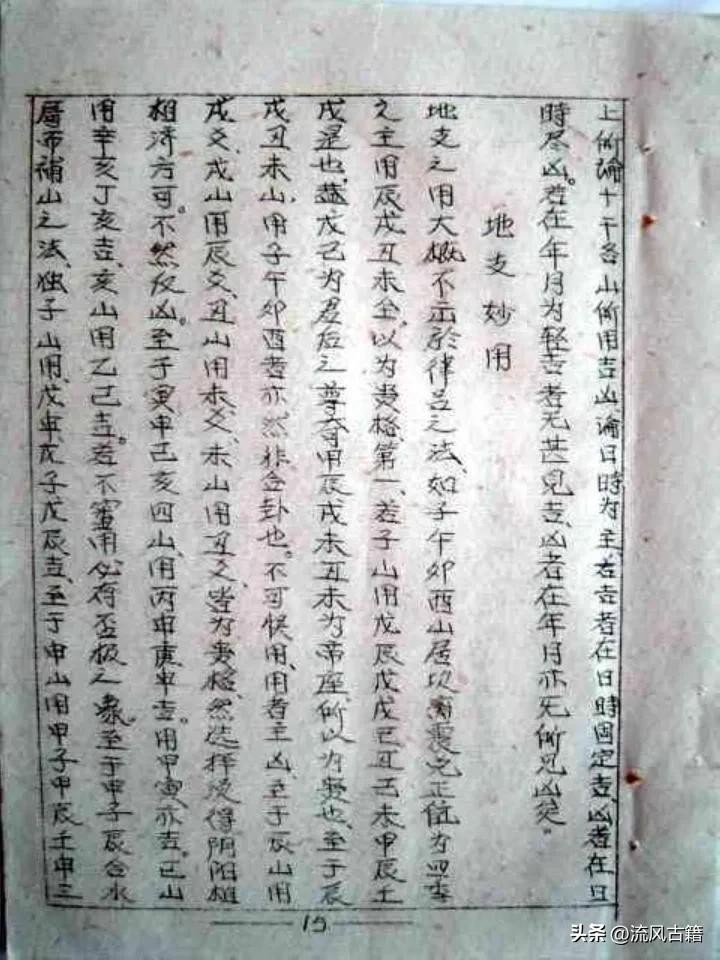 上所論十干各山所用吉凶論日時为主、若吉者在日時固定吉、凶者在日
時尽凶。若在年月为轻吉者无甚見吉、凶者在年月亦无所見凶矣。
地支妙用
地支之用大概不示於律吕之法、如子午卯酉山居坎离震兑正位为四季
之主用辰戌丑未全、以为貴格第一、若子山用戊辰戊戌己丑己未甲辰壬
戌是也、盖戊己为君后之尊夺甲辰戌未丑未为帝座所以为貴也、至于辰
戌丑未山、用子午卯酉者亦然非合卦也。不可悮用、用者主凶、至于辰山用
戌爻、戌山用辰爻、丑山用未爻、未山用丑爻、皆为貴格、然选择须得阴阳相
相济方可。不然反凶。至于寅申己亥四山、用丙申庚申吉。用甲寅亦吉。己山
用辛亥丁亥吉、亥山用乙己吉。若不審用必得否极之象。至于申子辰合水
局而補山之法、独子山用、戊申戊子戊辰吉、至于申山用甲子甲辰壬申三
19
头条 @流风古籍